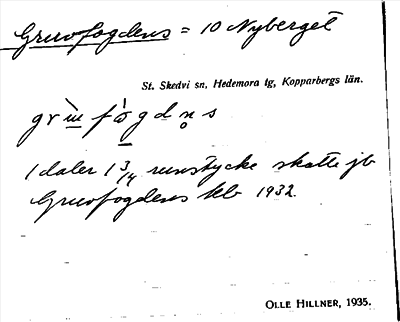 Gruvfogdens = 10 Nyberget
St. Skedvi sn, Hedemora tg, Kopparbergs län.
1 daler 1 3/14 runstycke skatte jb
Gruvfogdens klb 1932.
OLLE HILLNER, 1935.